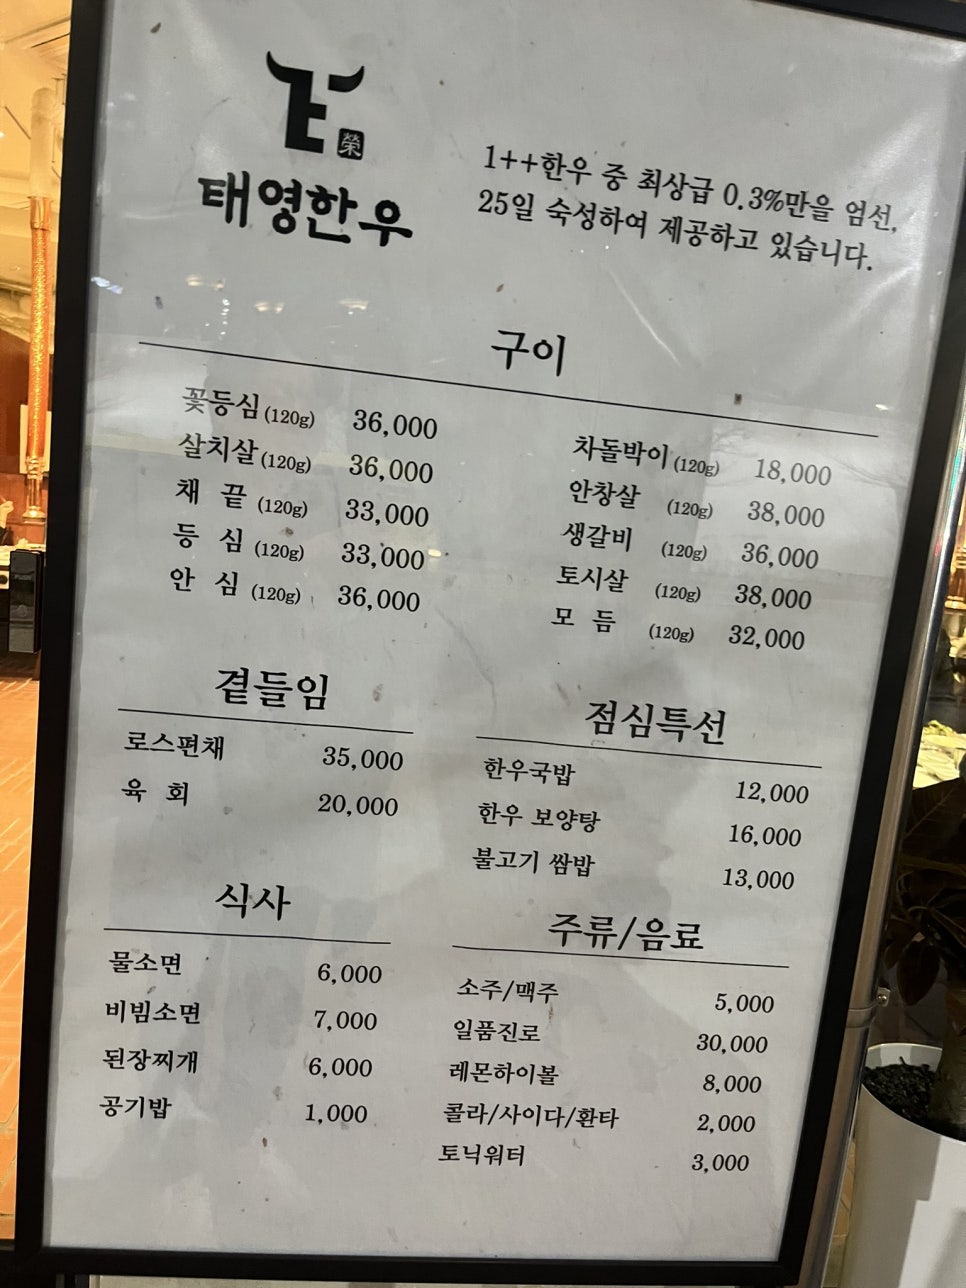 榮
태영한우
1++한우 중 최상급 0.3%만을 엄선,
25일 숙성하여 제공하고 있습니다.
구이
꽃등심 (120g) 36,000
살치살 (120g) 36,000
채 끝 (120g) 33,000
등 심 (120g) 33,000
안 심 (120g) 36,000
차돌박이 (120g) 18,000
안창살 (120g) 38,000
생갈비 (120g) 36,000
토시살 (120g) 38,000
모 듬 (120g) 32,000
곁들임
로스편채 35,000
육 회 20,000
점심특선
한우국밥 12,000
한우 보양탕 16,000
불고기 쌈밥 13,000
식사
물소면 6,000
비빔소면 7,000
된장찌개 6,000
공기밥 1,000
주류/음료
소주/맥주 5,000
일품진로 30,000
레몬하이볼 8,000
콜라/사이다/환타 2,000
토닉워터 3,000